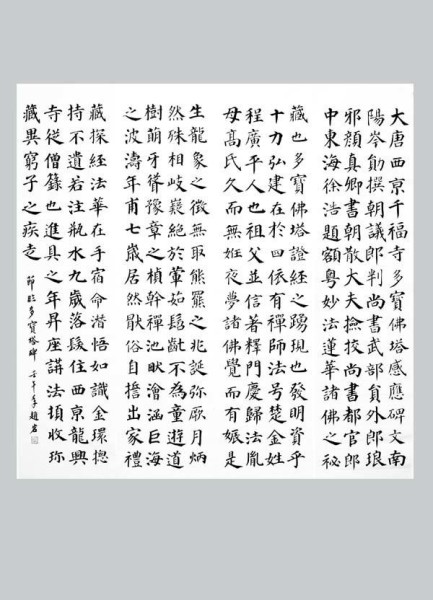 大唐西京千福寺多寶佛塔感應碑文南
陽岑勛撰朝議郎判尚書武部員外郎琅
邪顏真卿書朝散大夫撿挍尚書都官郎
中東海徐浩題額粵妙法蓮華諸佛之秘
藏也多寶佛塔證經之踴現也發明資乎
十力弘建在於四依有禪師法号楚金姓
程廣平人也祖父並信著釋門慶歸法胤
母高氏久而無姙夜夢諸佛覺而有娠是
生龍象之徵無取熊羆之兆誕弥厥月炳
然殊相岐嶷絕於葷茹髫齔不為童遊道
樹萌牙聳豫章之楨幹禪池畎澮涵巨海
之波濤年甫七歲居然厭俗自誓出家禮
藏探經法華在手宿命潛悟如識金環揔
持不遺若注瓶水九歲落髮住西京龍興
寺從僧籙也進具之年昇座講法頓收珎
藏異窮子之疾走
節臨多寶塔碑 壬午年趙